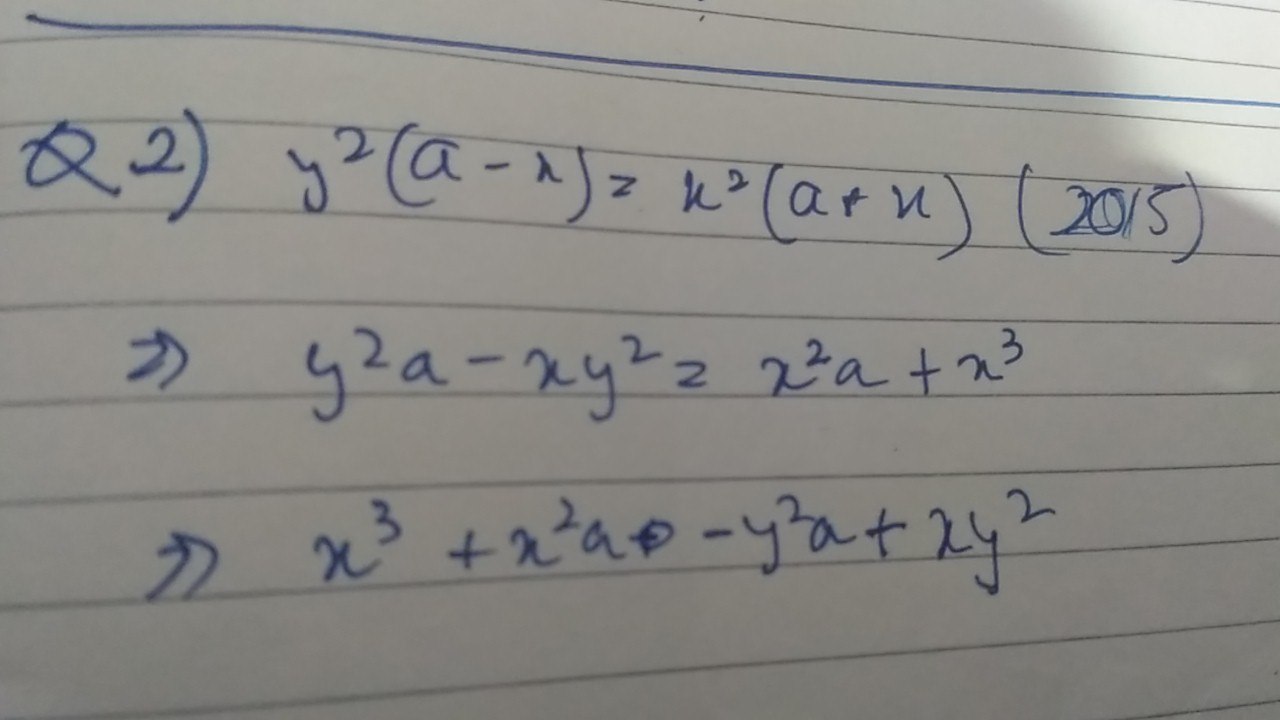 Q 2) y²(a - x) = x²(a + x) (2015)
⇒ y²a - xy² = x²a + x³
⇒ x³ + x²a - y²a + xy²